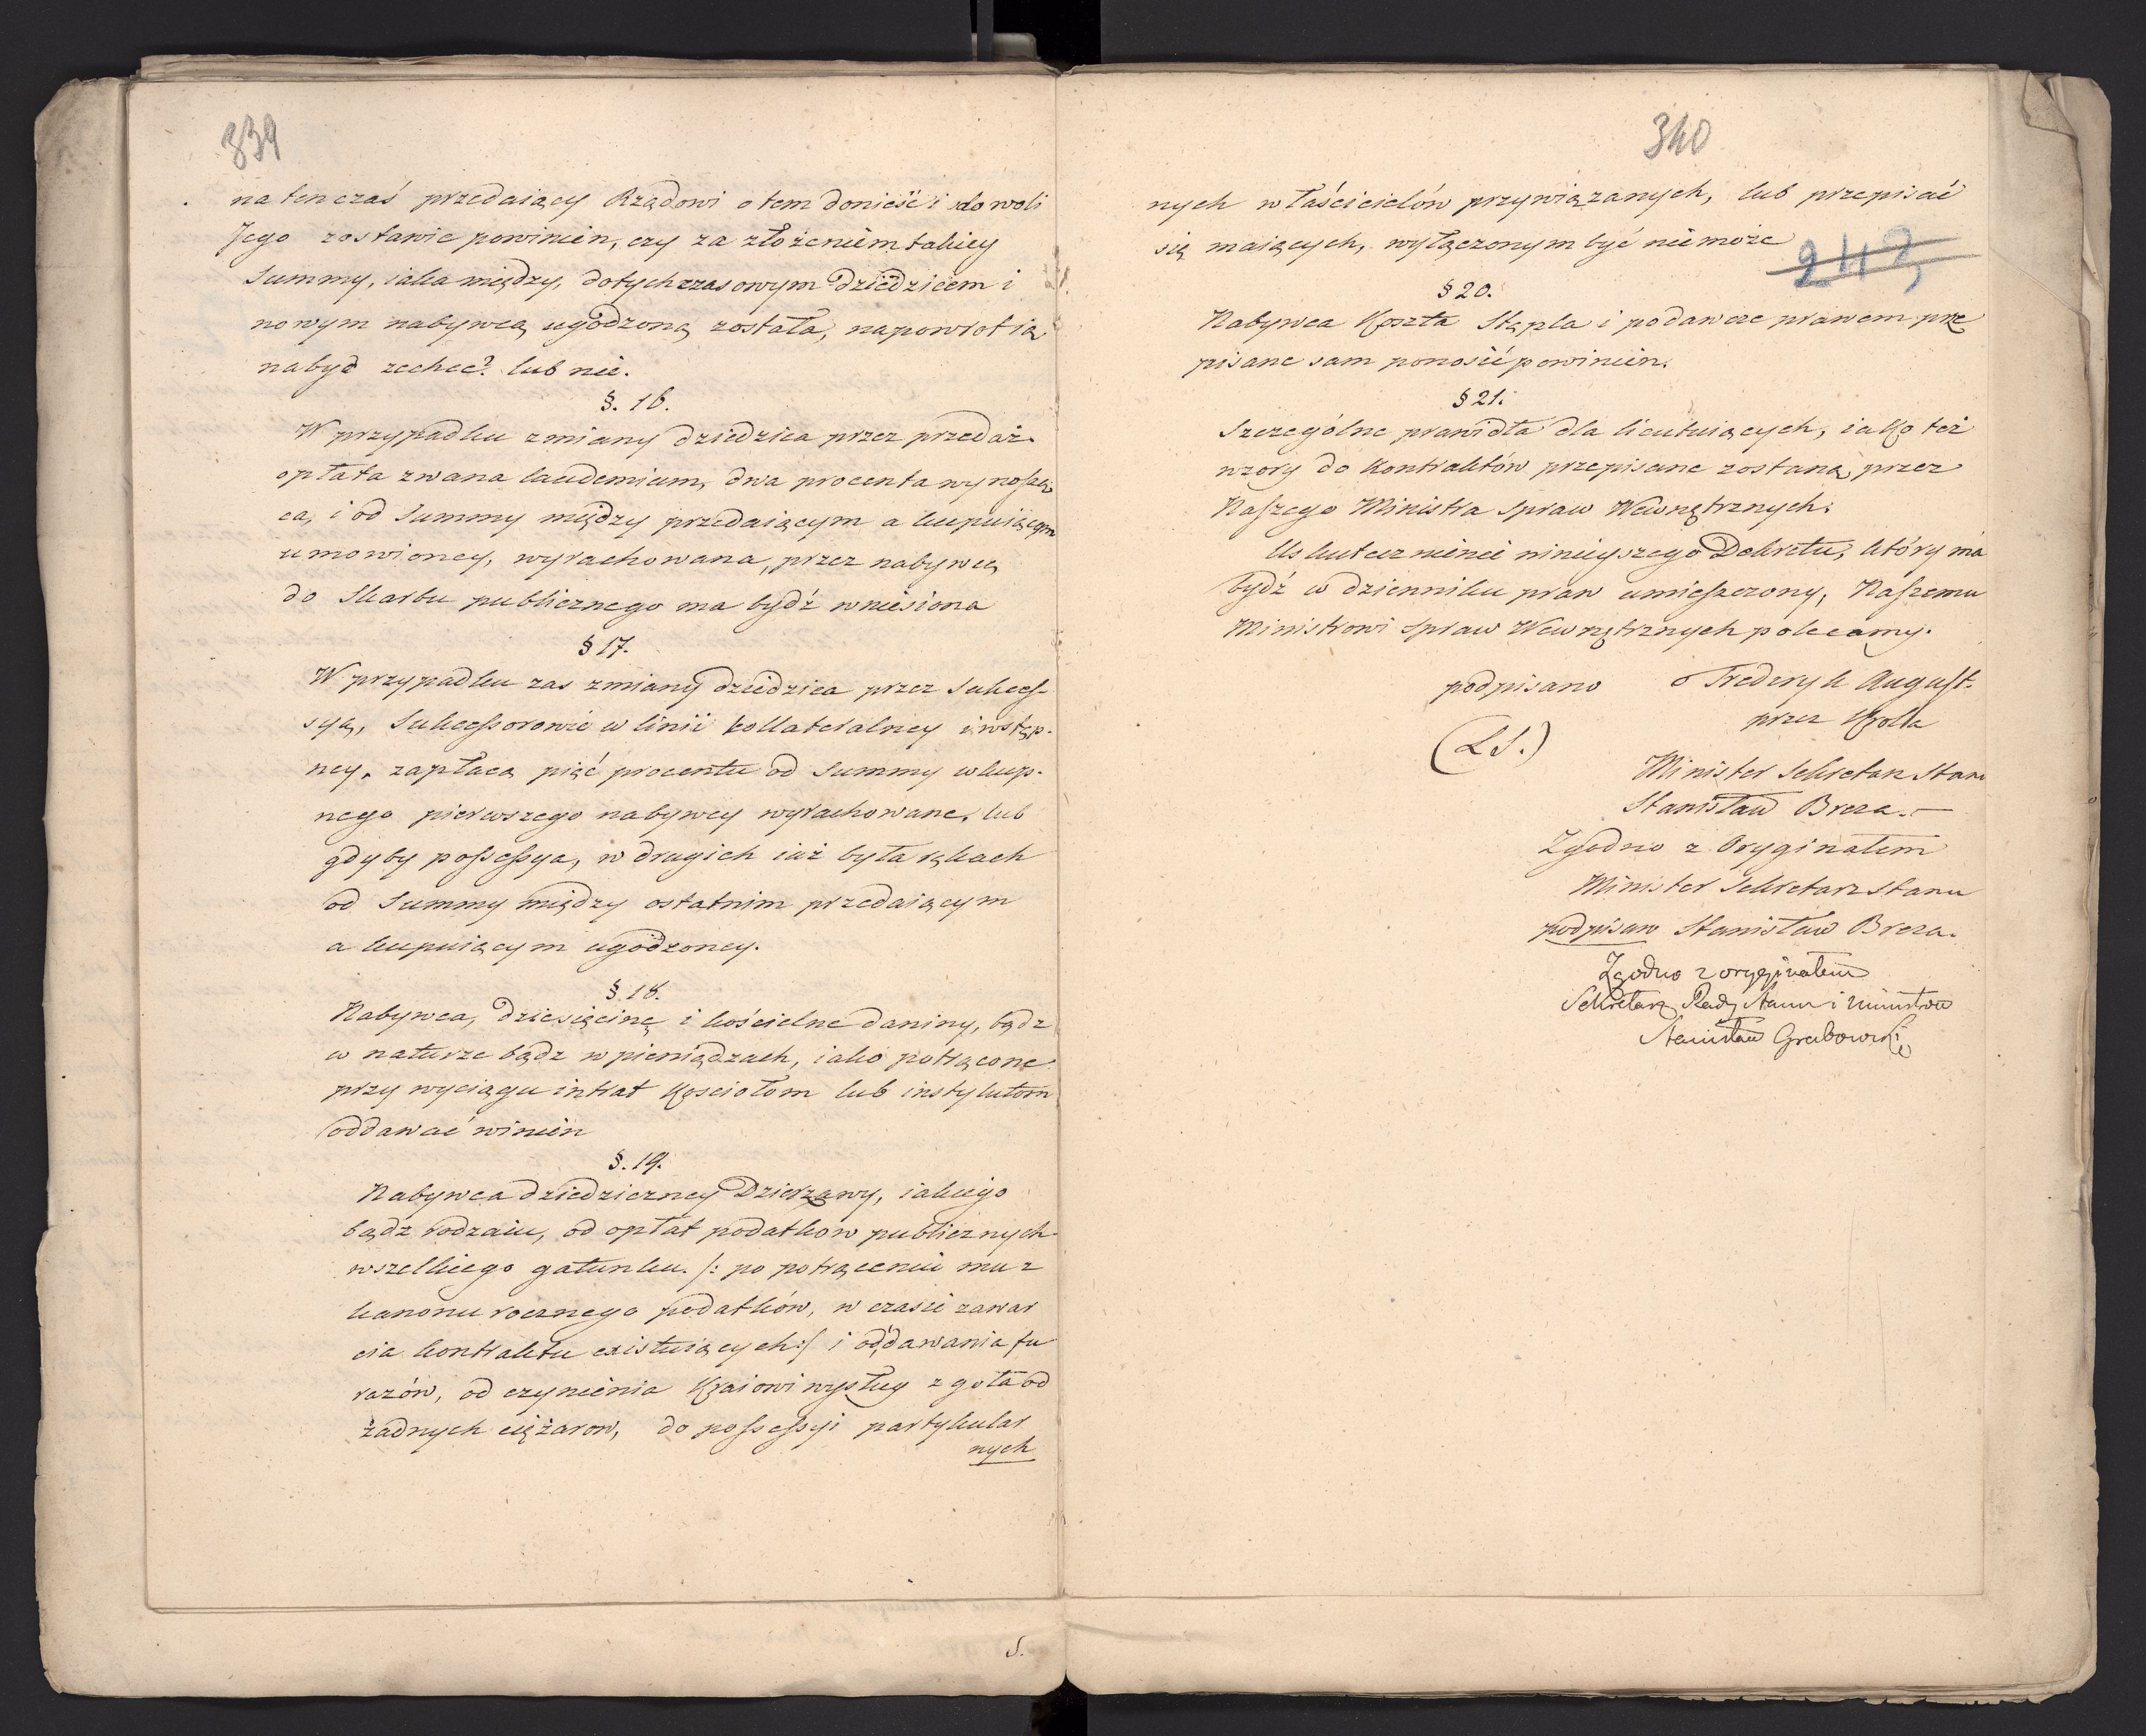 339
na ten czaś przedaiący Rządowi o tem donieść i do woli
Jego zostawić powinien, czy za złożeniem takiey
Summy, iaka między, dotychczasowym Dziedzicem i
nowym nabywcą ugodzoną została, napowrot ią
nabyd zechce? lub nie.
§. 16.
W przypadku zmiany dziedzica przez przedaż
opłata zwana laudemium, dwa procenta wynosząca
ca, i od Summy między przedaiącym a kupuiącym
umowioney, wyrachowana, przez nabywcę
do Skarbu publicznego ma bydź wniesiona
§ 17.
W przypadku zas zmiany dziedzica przez Sukces-
syą, Sukcessorowie w linii kollateralney i wstęp-
ney, zapłacą pięć procentu od Summy wkup-
nego pierwszego nabywcy wyrachowane, lub
gdyby possessya, w drugich iuż była rękach
od Summy między ostatnim przedaiącym
a kupuiącym ugodzoney.
§. 18.
Nabywca, dziesięcinę i kościelne daniny, bądz
w naturze bądz w pieniądzach, iako potrącone
przy wyciągu intrat Kosciołom lub instytutom
oddawać winien
§. 19.
Nabywca dziedziczney Dzierzawy, iakiego
bądz rodzaiu, od opłat podatkow publicznych
wszelkiego gatunku. /: po potrąceniu mu z
kanonu rocznego podatków, w czasie zawar
cia kontraktu existuiących :/ i oddawania fu
razów, od czynienia Kraiowi wysług zgoła od
żadnych ciężarow, do possessyi partykular
nych
S.
340
nych właścicielów przywiązanych, lub przepisać
się maiących, wyłączonym być nie może
243
§ 20.
Nabywca Koszta Stępla i podawcze prawem prze
pisane sam ponosić powinien.
§ 21.
Szczególne prawidła dla licutuiących, iako też
wzory do Kontraktów przepisane zostaną przez
Naszego Ministra Spraw Wewnętrznych.
Uskutecznienie ninieyszego Dekretu, który ma
bydź w dzienniku praw umieszczony, Naszemu
Ministrowi Spraw Wewnętrznych polecamy.
podpisano Frederyk August.
przez Krola
(L S.)
Minister Sekretarz Stanu
Stanisław Breza.-
Zgodno z Oryginałem
Minister Sekretarz Stanu
podpisano Stanisław Breza.
Zgodno z oryginałem
Sekretarz Rady Stanu i Ministrow
Stanisław Grabowski